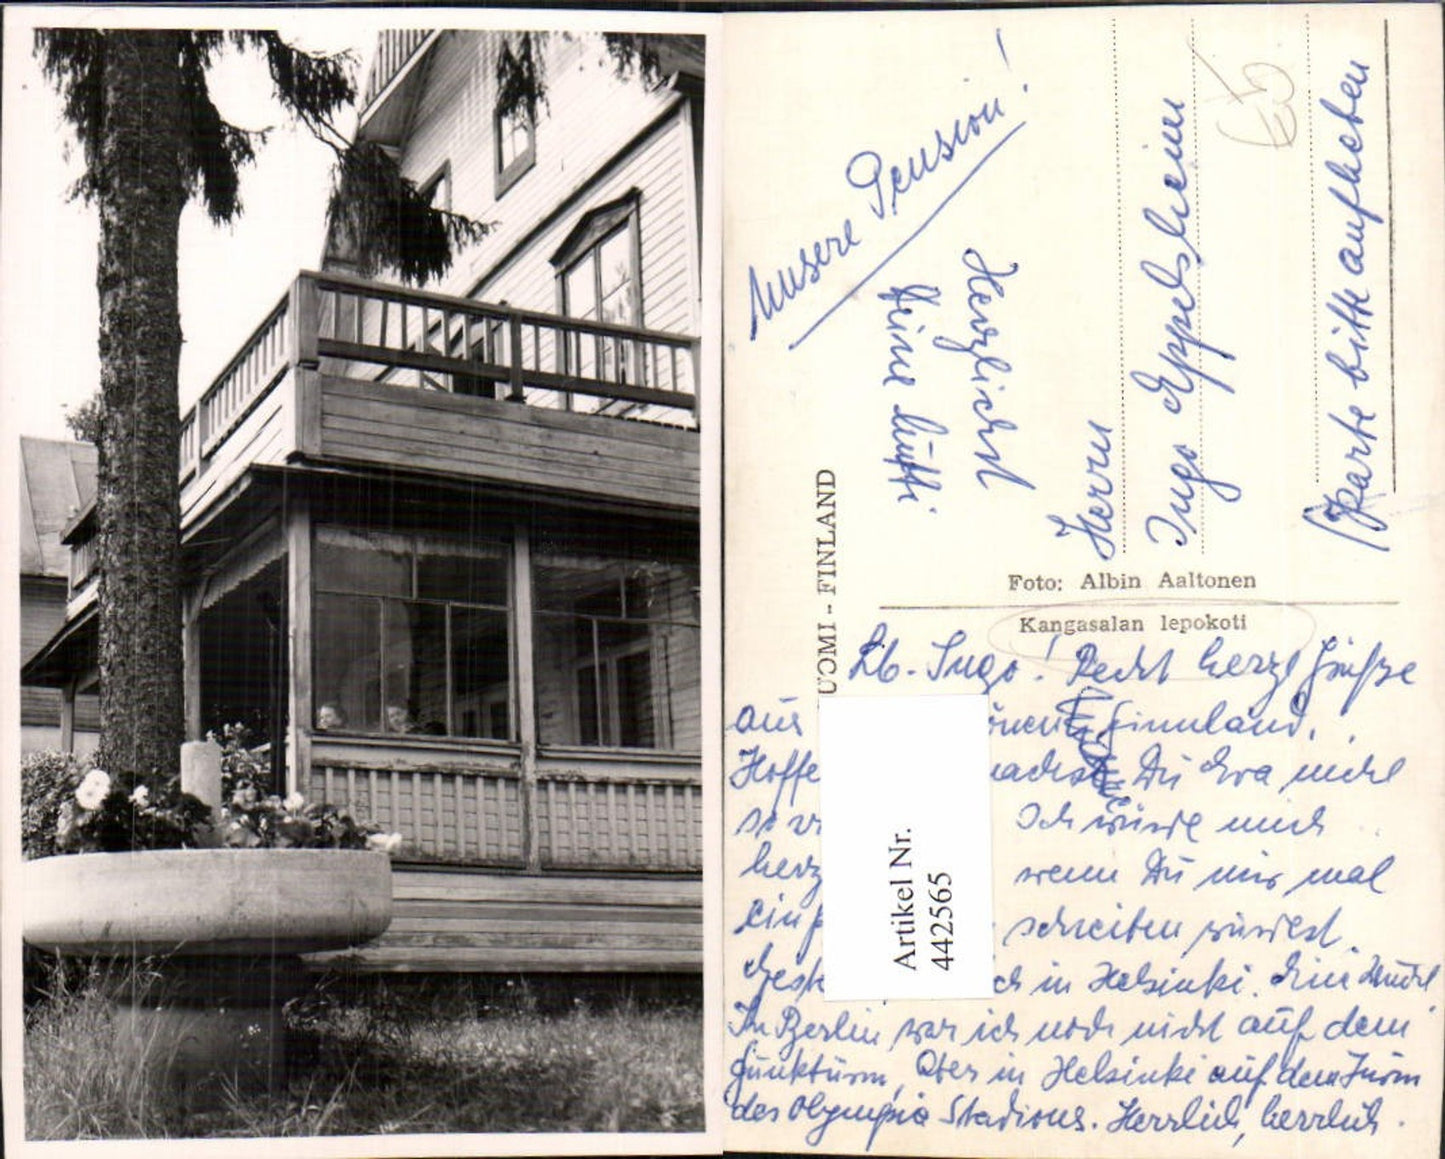 Unsere Pension!
Herzlichst
Deine
Herrn
Ingo Eppelsheim
Karte bitte aufheben
UOMI - FINLAND
Foto: Albin Aaltonen
Kangasalan lepokoti
Lb. Ingo! Recht herzl Grüße
aus Finnland.
Hoffe Du
Ich würde mich
herz wenn Du mir mal
ein schreiben würdest.
Gest ich in Helsinki. Eine
In Berlin war ich noch nicht auf dem
Funkturm, Aber in Helsinki auf dem Turm
des Olympia Stadions. Herrlich, herrlich.
Artikel Nr.
442565